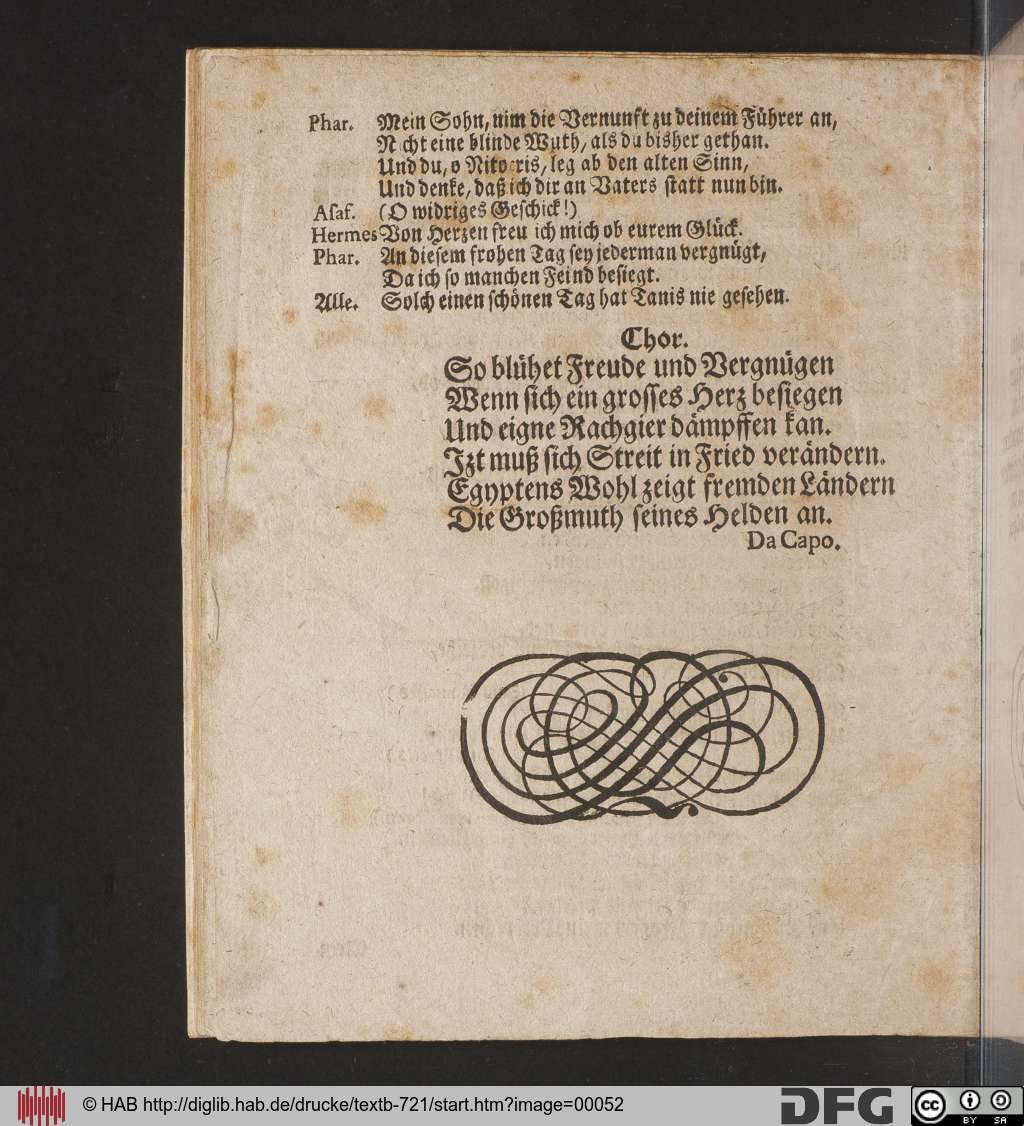 Phar. Mein Sohn, nim die Vernunft zu deinem Führer an,
N cht eine blinde Wuth, als du bisher gethan.
Und du, o Nitocris, leg ab den alten Sinn,
Und denke, daß ich dir an Vaters statt nun bin.
Asaf. (O widriges Geschick!)
Hermes Von Herzen freu ich mich ob eurem Glück.
Phar. An diesem frohen Tag sey jederman vergnügt,
Da ich so manchen Feind besiegt.
Alle. Solch einen schönen Tag hat Tanis nie gesehen.
Chor.
So blühet Freude und Vergnügen
Wenn sich ein grosses Herz besiegen
Und eigne Rachgier dämpffen kan.
Jzt muß sich Streit in Fried verändern.
Egyptens Wohl zeigt fremden Ländern
Die Großmuth seines Helden an.
Da Capo.
© HAB http://diglib.hab.de/drucke/textb-721/start.htm?image=00052
DFG
cc
BY SA